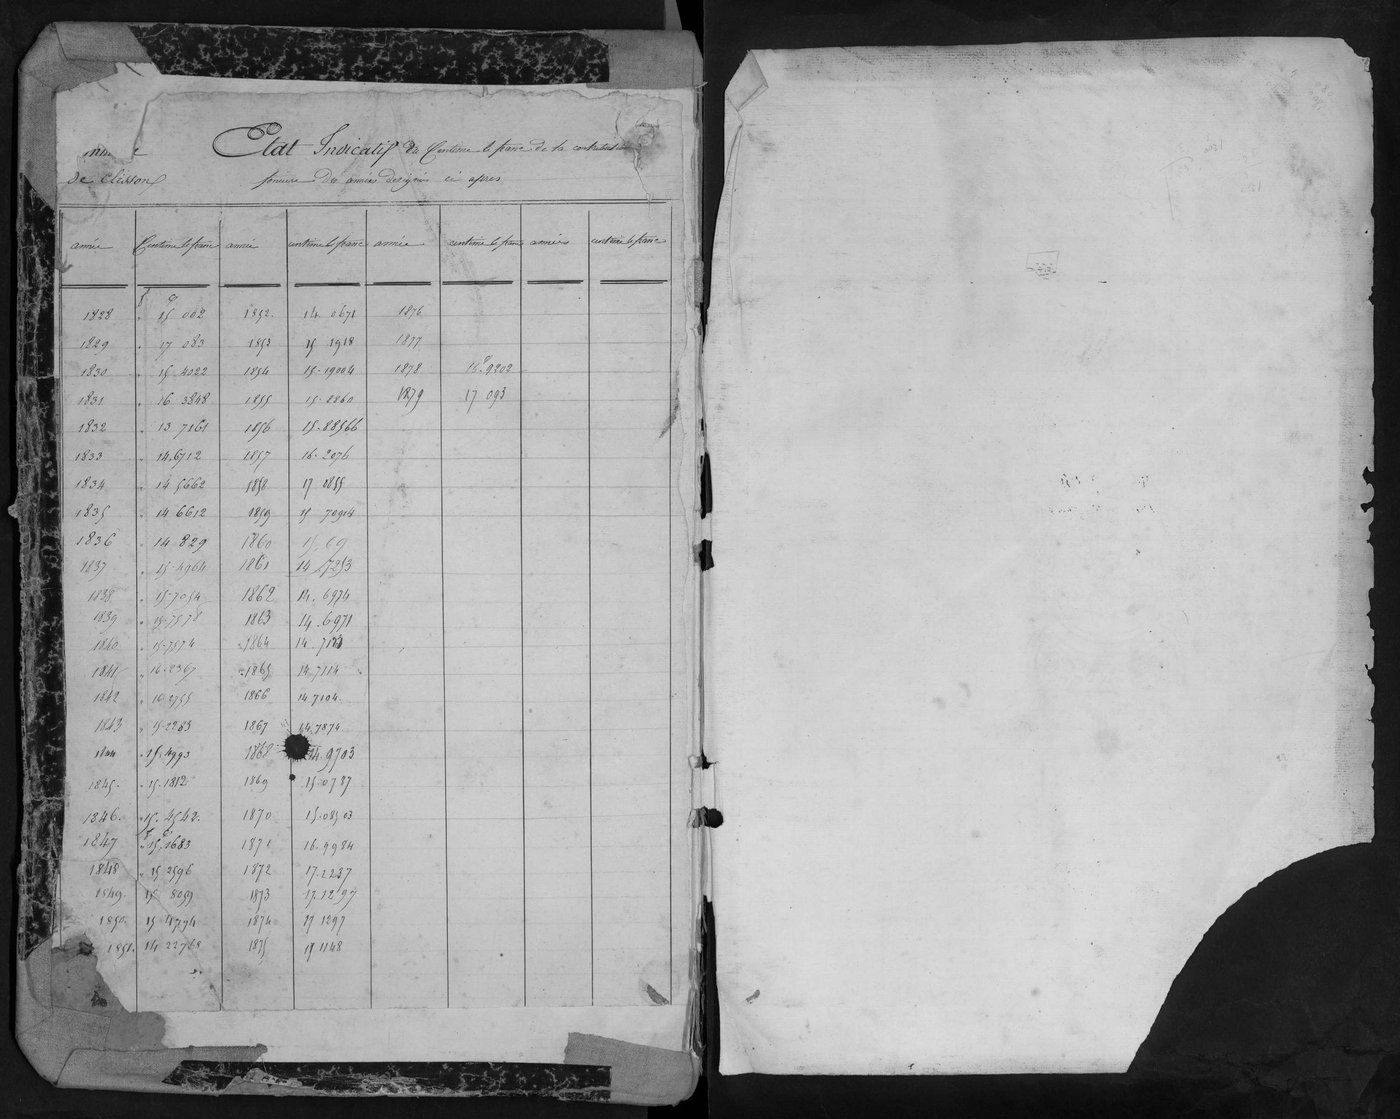 Etat Indicatif du Centime le franc de la contribution
de Clisson foncière des années désignées ci après
année Centime le franc année centime le franc année centime le franc années centime le franc
1828 15 002 1852 14 0671 1876
1829 17 083 1853 15 1918 1877
1830 15 4022 1854 15-19004 1878 9202
1831 16 3848 1855 15-8860 1879 17 093
1832 13 7161 1856 15-88566
1833 14.6712 1857 16-2076
1834 14 5662 1858 17 0855
1835 14 6612 1859 15 70914
1836 14.829 1860 15.69
1837 15-4964 1861 14.7253
1838 15-7054 1862 14.6974
1839 15.7578 1863 14.6971
1840 15-7574 1864
1841 16-2367 1865 14.7114
1842 16-2755 1866 14.7104
1843 15-2283 1867 14.7874
1844 15.4993 1868 14.9703
1845 15.1812 1869 15.0737
1846 15.4542 1870 15.08503
1847 15.1683 1871 16.4984
1848 15 2596 1872 17.2237
1849 15 8059 1873 17.1297
1850 15 4794 1874 17 1297
1851 14 22768 1875 17 1148